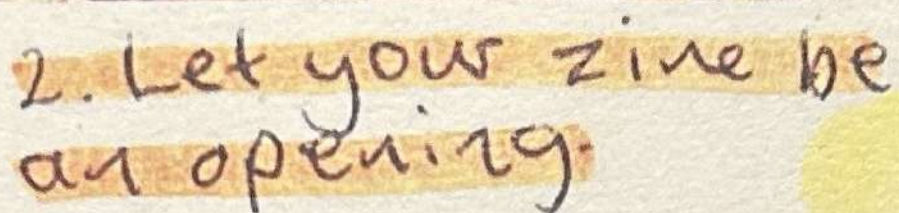 2. Let your zine be
an opening.